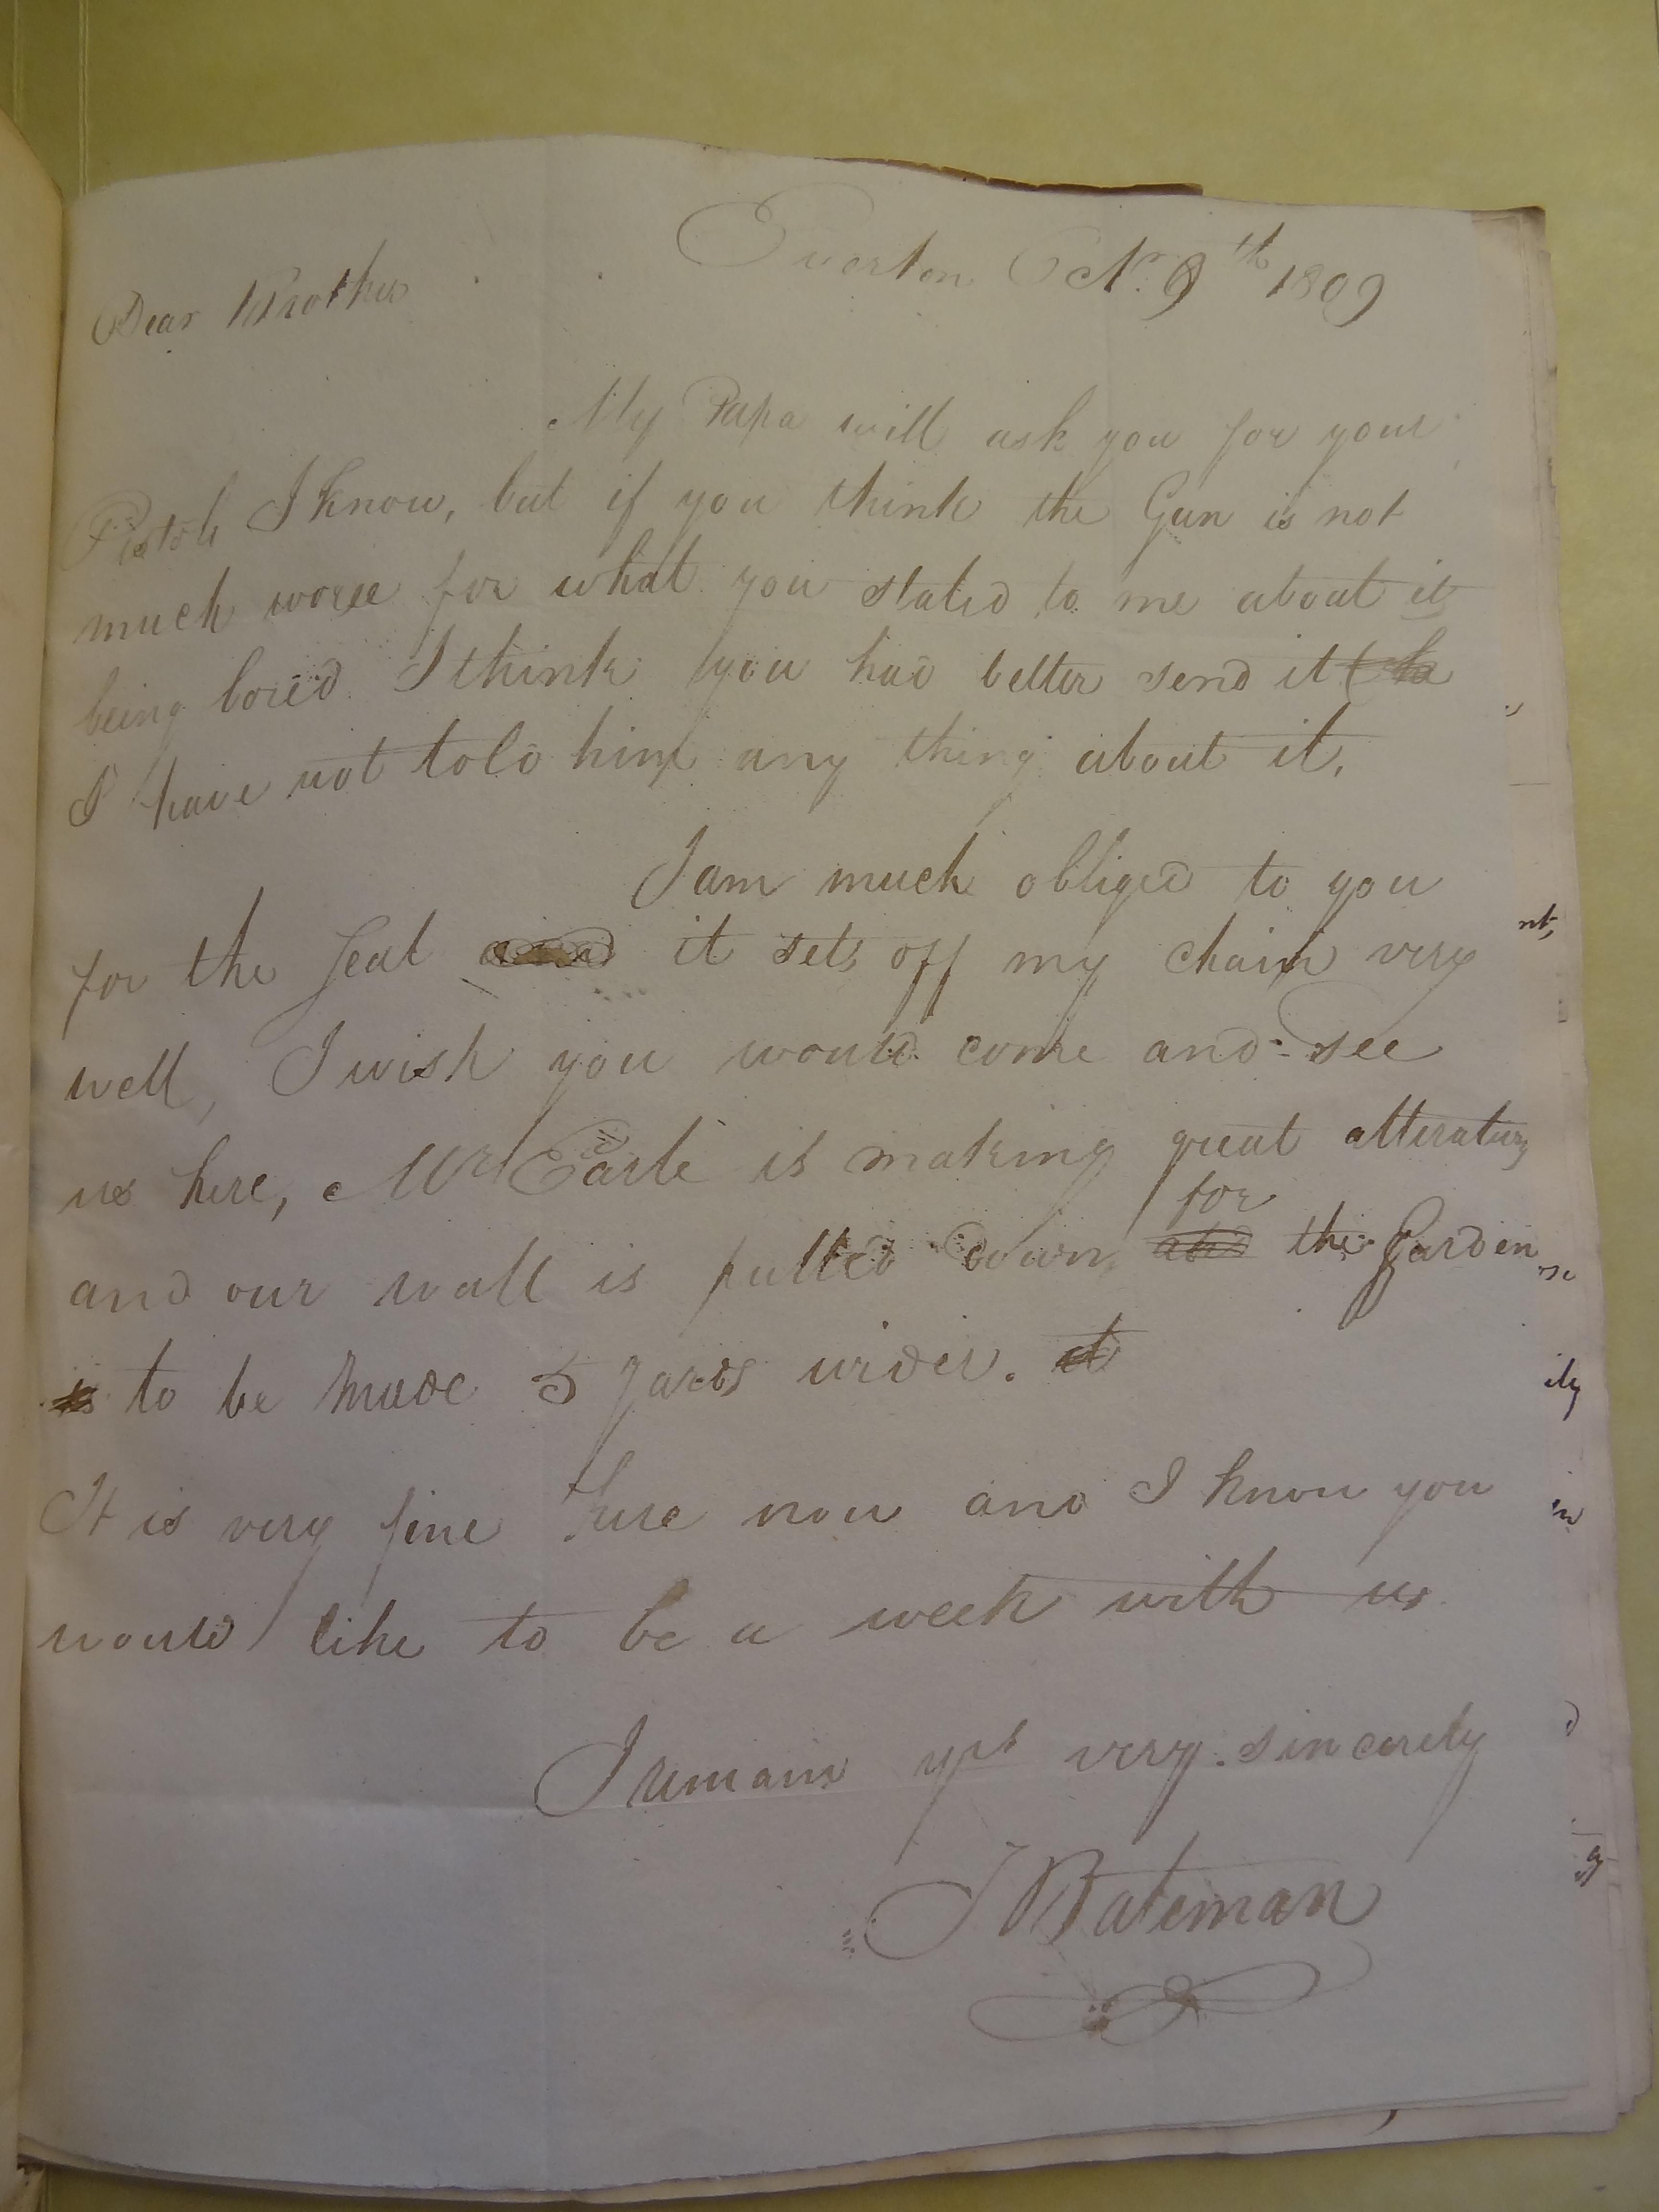 Everton Octr. 9th 1809
Dear Brother
My Papa will ask you for your
Pistols I know, but if you think the Gun is not
much worse for what you stated to me about it
being bored I think you had better send it
I have not told him any thing about it,
I am much obliged to you
for the Seal and it sets off my chain very
well, I wish you would come and see
us here, Mr Earle is making great alterations
and our wall is pulled down for the Garden
is to be made 5 Yards wider. it
It is very fine here now and I know you
would like to be a week with us
I remain yrs very sincerely
J Bateman
nt,
ily